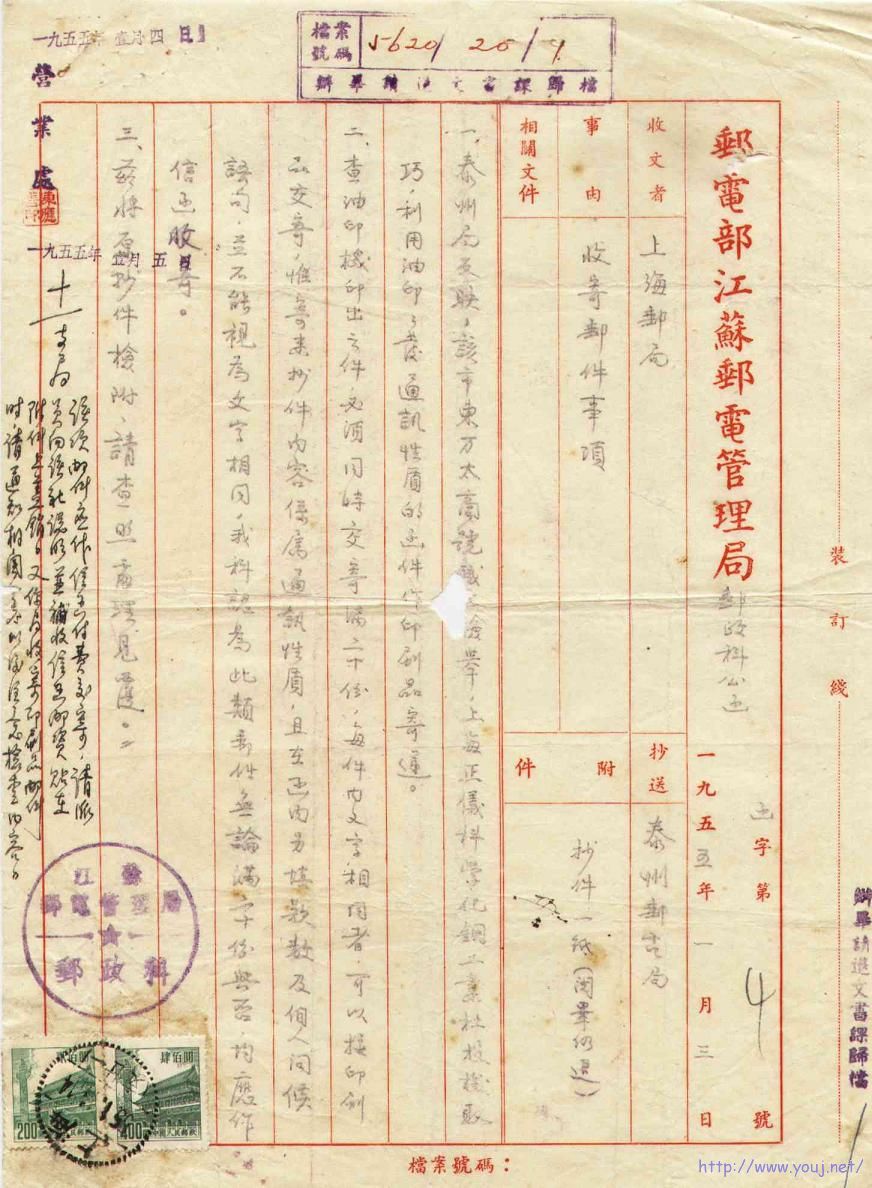 裝訂綫
辦畢請送文書課歸檔
郵電部江蘇郵電管理局
郵政科公函
函字第4號
一九五五年一月三日
收文者
上海郵局
抄送
泰州郵電局
事由
收寄郵件事項
附件
抄件一紙(閱畢仍退)
相關文件
一、泰州局反映,該市東方太商號職工檢舉,上海正儀科學化銅工業社投機取
巧,利用油印之發通訊性質的函件作印刷品寄遞。
二、查油印機印出之件,必須同時交寄滿二十份,每件內文字相同者,可以按印刷
品交寄,惟寄來抄件內容係屬通訊性質,且在函內另填款數及個人問候
語句,並不能視為文字相同,我科認為此類郵件無論滿二十份與否均應作
信函收寄。
三、茲將原抄件檢附,請查照處理見覆。
檔案號碼
5620/20/4
辦畢請送文書課歸檔
一九五五年壹月四日
營業處
一九五五年壹月五日
十一支局
該項郵件應作信函付費交寄,請派
員向該社說明並補收信函郵資貼在
附件上蓋銷。又你局收寄印刷品郵件
時,請通知相關人員以後注意檢查內容。
江蘇
郵電管理局
郵政科
貳佰圓
200
肆佰圓
400
中國人民郵政
檔案號碼:
http://www.youj.net/